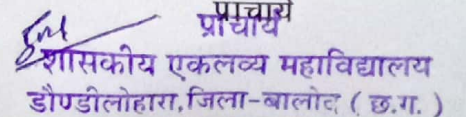 प्राचार्य
प्राचार्य
शासकीय एकलव्य महाविद्यालय
डौण्डीलोहारा,जिला-बालोद ( छ.ग. )